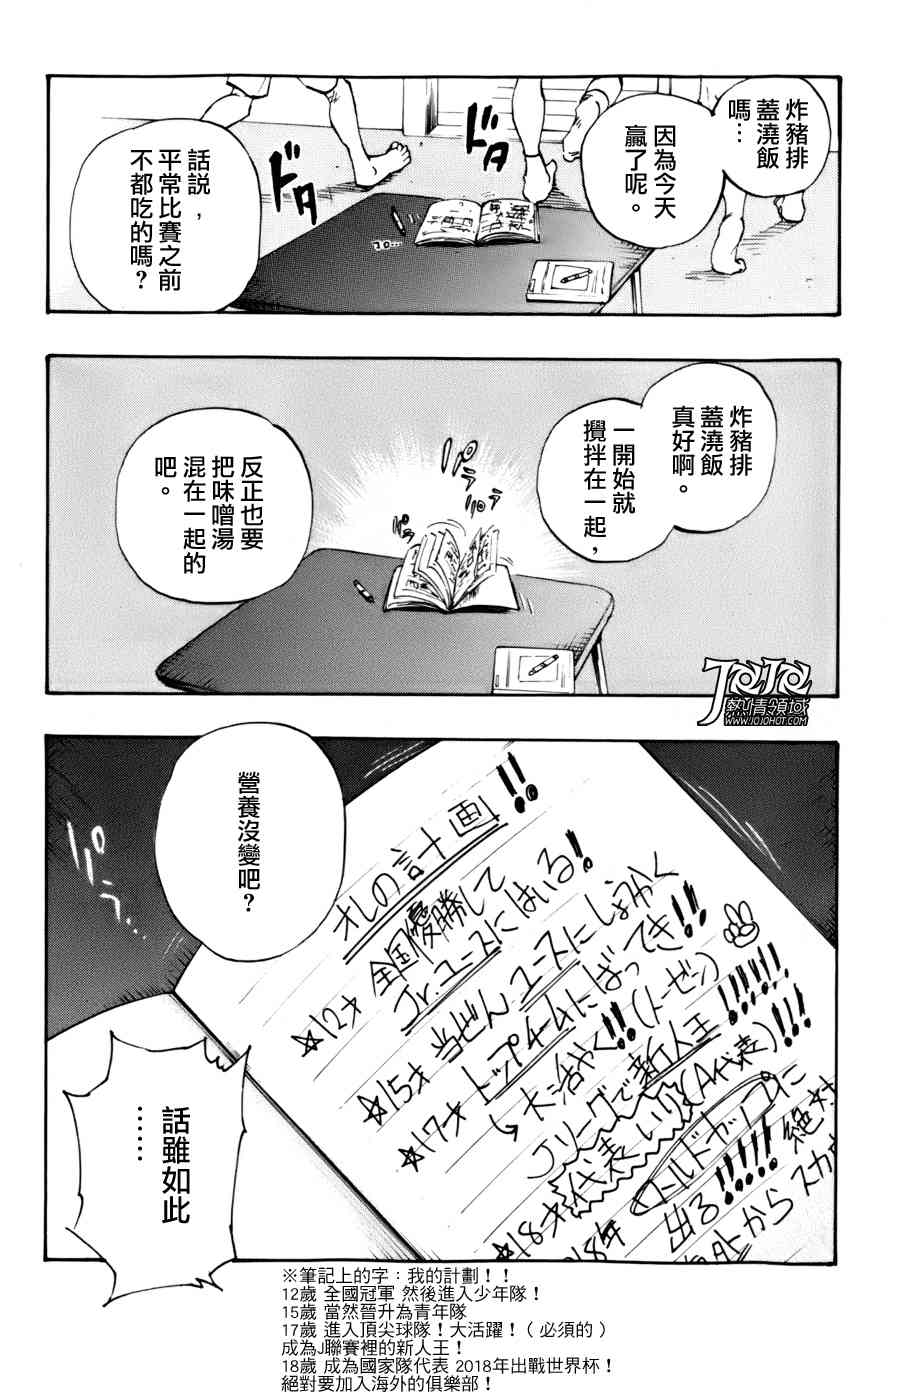 炸豬排
蓋澆飯
嗎…
因為今天
贏了呢。
ドタ
ドタ
話説，
平常比賽之前
不都吃的嗎？
コロ…
炸豬排
蓋澆飯
真好啊。
一開始就
攪拌在一起，
パラ
パラ
反正也要
把味噌湯
混在一起的
吧。
JOJO
熱情領域
WWW.JOJOHOT.COM
パラ
營養沒變吧？
オレの計画!!
☆12才 全国優勝して
Jr.ユースにはいる!
☆15才 当ぜん ユースにしょうかく
☆17才 トップチームにばってき!!
→大活やく!! (トーゼン)
Jリーグで新人王!!!!!!
☆18才 代表入り (A代表)!!!
18年 ワールドカップに
出る!!!!! 絶対
からスカ
話雖如此
……
※筆記上的字：我的計劃！！
12歲 全國冠軍 然後進入少年隊！
15歲 當然晉升為青年隊
17歲 進入頂尖球隊！大活躍！（ 必須的 ）
成為J聯賽裡的新人王！
18歲 成為國家隊代表 2018年出戰世界杯！
絕對要加入海外的俱樂部！